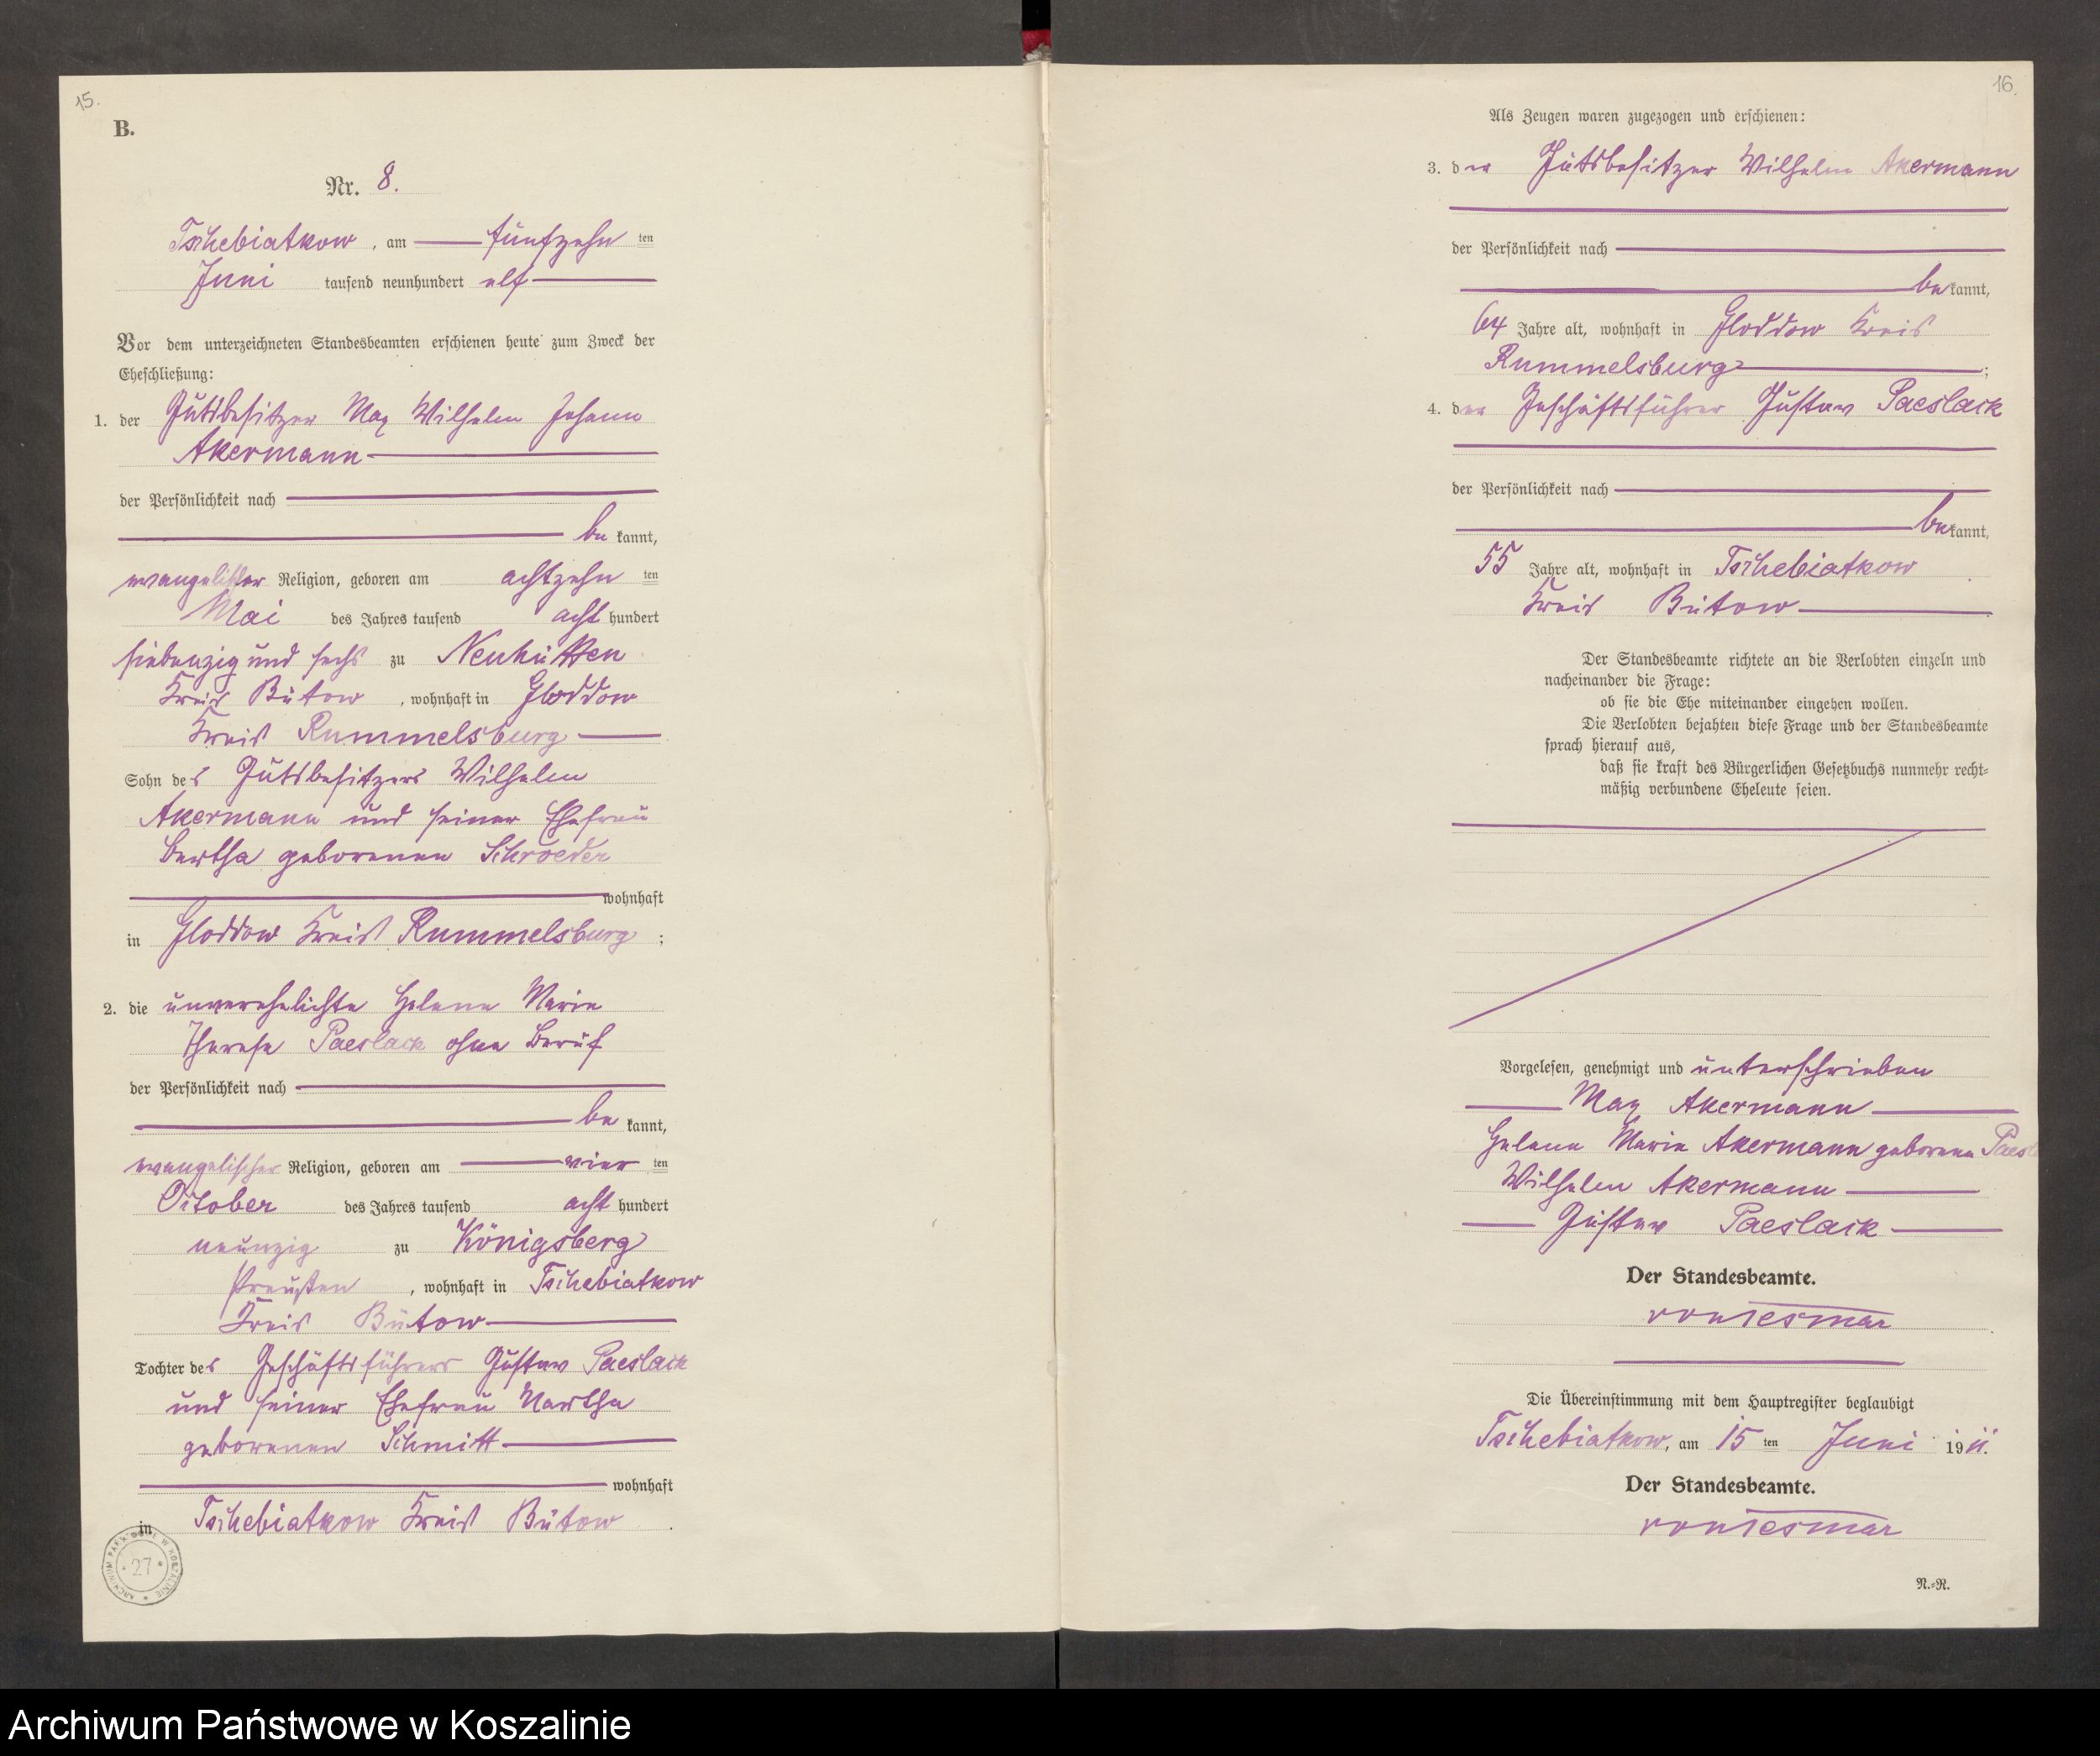 15.
B.
Nr. 8.
Tschebiatkow, am fünfzehn ten
Juni tausend neunhundert elf
Vor dem unterzeichneten Standesbeamten erschienen heute zum Zweck der
Eheschließung:
1. der Gutsbesitzer Max Wilhelm Johann
Akermann
der Persönlichkeit nach
be kannt,
evangelischer Religion, geboren am achtzehn ten
Mai des Jahres tausend acht hundert
siebenzig und sechs zu Neuhütten
Kreis Bütow, wohnhaft in Gloddow
Kreis Rummelsburg
Sohn des Gutsbesitzers Wilhelm
Akermann und seiner Ehefrau
Bertha geborenen Schroeder
wohnhaft
in Gloddow Kreis Rummelsburg ;
2. die unverehelichte Helene Marie
Therese Paeslack ohne Beruf
der Persönlichkeit nach
be kannt,
evangelischer Religion, geboren am vier ten
October des Jahres tausend acht hundert
neunzig zu Königsberg
Preußen, wohnhaft in Tschebiatkow
Kreis Bütow
Tochter des Geschäftsführers Gustav Paeslack
und seiner Ehefrau Martha
geborenen Schmitt
wohnhaft
in Tschebiatkow Kreis Bütow .
ARCHIWUM PAŃSTWOWE W KOSZALINIE * 27 *
16.
Als Zeugen waren zugezogen und erschienen:
3. der Gutsbesitzer Wilhelm Akermann
der Persönlichkeit nach
be kannt,
64 Jahre alt, wohnhaft in Gloddow Kreis
Rummelsburg ;
4. der Geschäftsführer Gustav Paeslack
der Persönlichkeit nach
be kannt,
55 Jahre alt, wohnhaft in Tschebiatkow
Kreis Bütow .
Der Standesbeamte richtete an die Verlobten einzeln und
nacheinander die Frage:
ob sie die Ehe miteinander eingehen wollen.
Die Verlobten bejahten diese Frage und der Standesbeamte
sprach hierauf aus,
daß sie kraft des Bürgerlichen Gesetzbuchs nunmehr recht-
mäßig verbundene Eheleute seien.
Vorgelesen, genehmigt und unterschrieben
Max Akermann
Helene Marie Akermann geborene Paesl
Wilhelm Akermann
Gustav Paeslack
Der Standesbeamte.
von Tesmar
Die Übereinstimmung mit dem Hauptregister beglaubigt
Tschebiatkow, am 15 ten Juni 19 11.
Der Standesbeamte.
von Tesmar
N.-R.
Archiwum Państwowe w Koszalinie